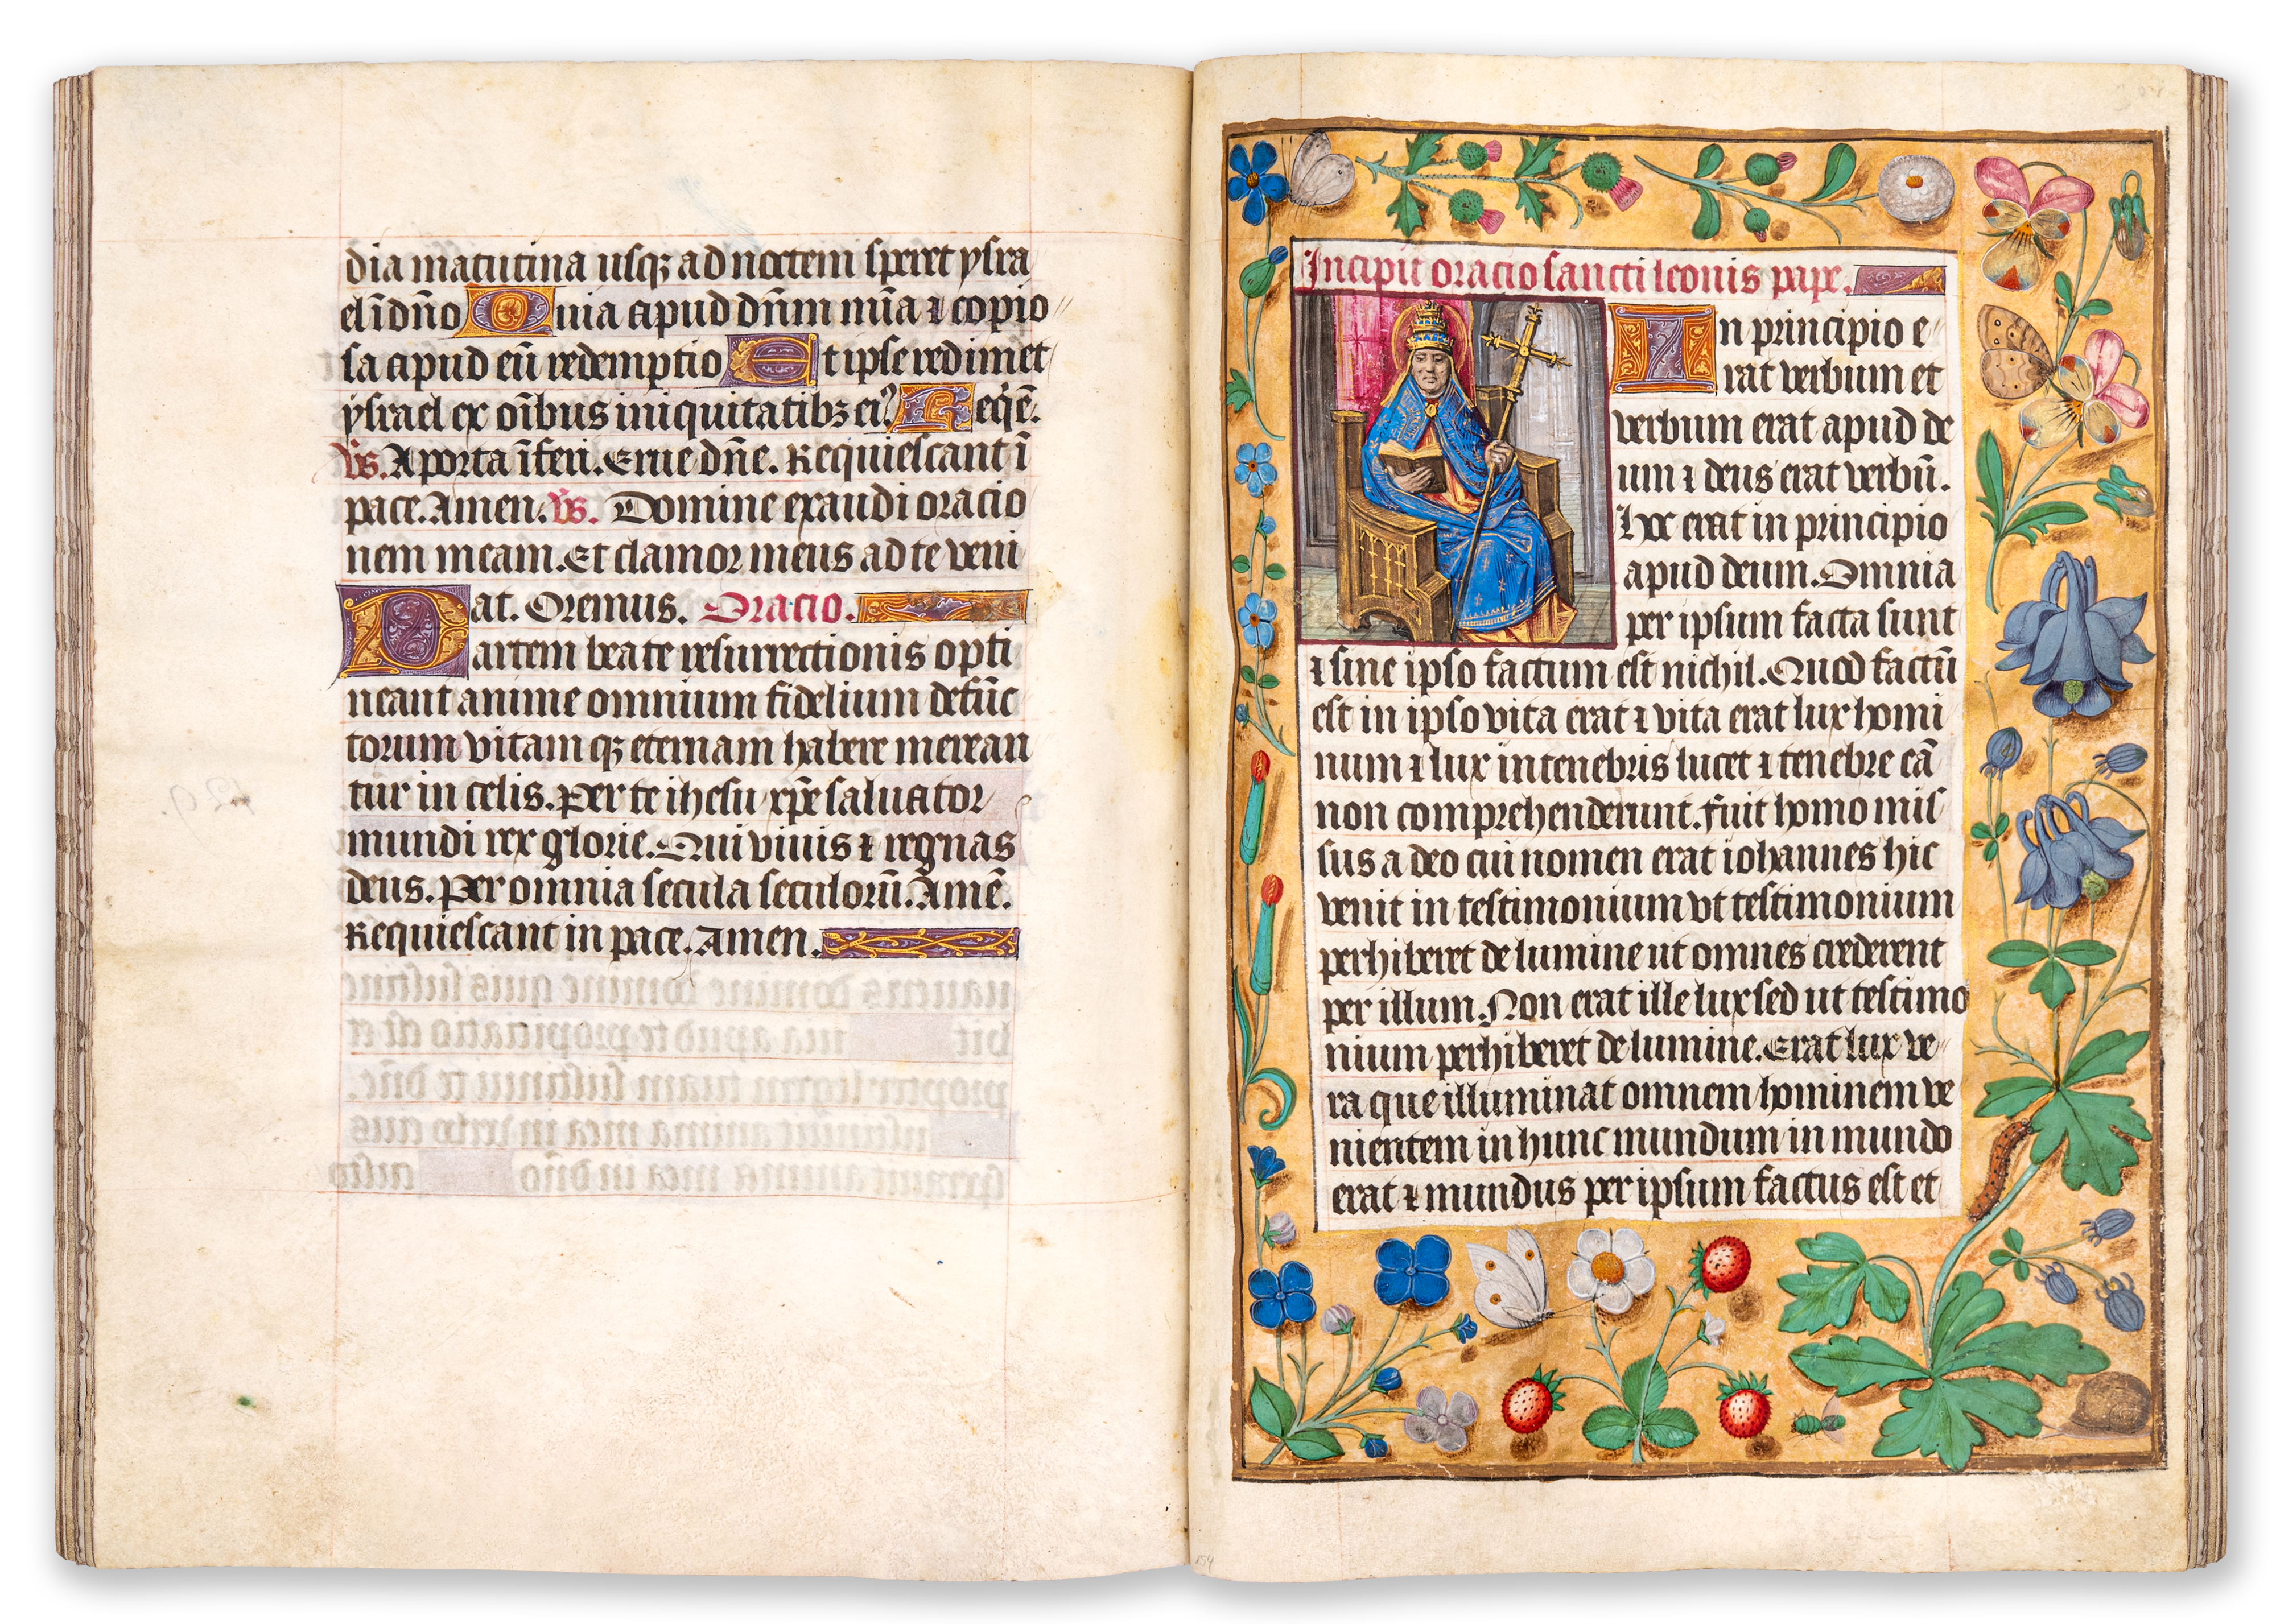 dia matutina usqꝫ ad noctem speret ysra
el ī dño Quia apud dñm mīa ⁊ copio
sa apud eū redemptio Et ipse redimet
ysrael ex oībus iniquitatibꝫ ei⁹ Reqē.
Vs. A porta īferi. Erue dñe. Requiescant ī
pace. Amen. Vs. Domine exaudi oracio
nem meam. Et clamor meus ad te veni
at. Oremus. Oracio.
Partem beate resurrectionis opti
neant anime omnium fidelium defūc
torum vitam qꝫ eternam habere merean
tur in celis. Per te ihesu xp̄e saluator
mundi rex glorie. Qui viuis ⁊ regnas
deus. Per omnia secula seculorū. Amē.
Requiescant in pace. Amen.
Incipit oracio sancti leonis pape.
In principio e
rat verbum et
verbum erat apud de
um ⁊ deus erat verbū.
Hoc erat in principio
apud deum. Omnia
per ipsum facta sunt
⁊ sine ipso factum est nichil. Quod factū
est in ipso vita erat ⁊ vita erat lux homi
num ⁊ lux in tenebris lucet ⁊ tenebre eā
non comprehenderunt. Fuit homo mis
sus a deo cui nomen erat iohannes hic
venit in testimonium vt testimonium
perhiberet de lumine ut omnes crederent
per illum. Non erat ille lux sed ut testimo
nium perhiberet de lumine. Erat lux ve
ra que illuminat omnem hominem ve
nientem in hunc mundum in mundo
erat ⁊ mundus per ipsum factus est et